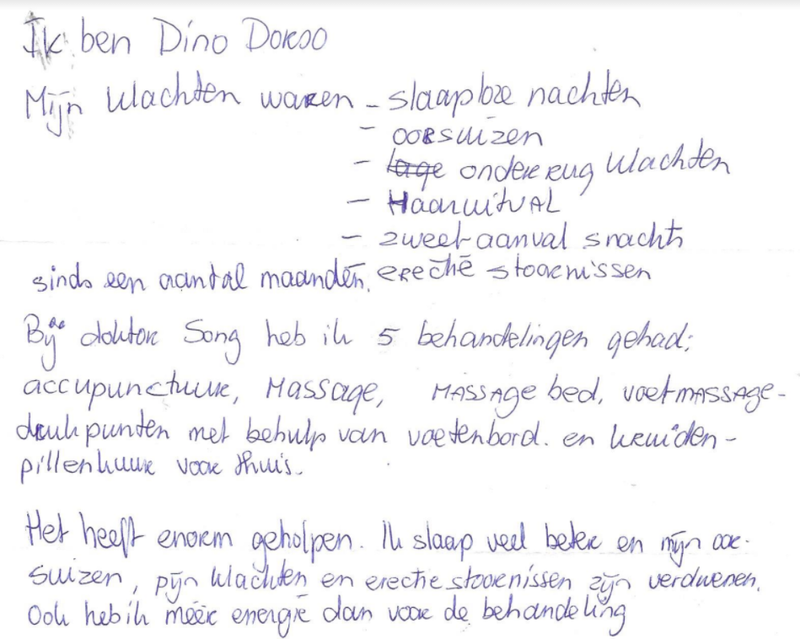 Ik ben Dino Doroo
Mijn klachten waren - slaaploze nachten
- oorsuizen
- lage onderrug klachten
- Haaruitval
- zweet-aanval snachts
sinds een aantal maanden, erectie stoornissen
Bij doktor Song heb ik 5 behandelingen gehad;
accupunctuur, Massage, MASSAge bed, voetmassage-
drukpunten met behulp van voetenbord. en kruiden-
pillenkuur voor thuis.
Het heeft enorm geholpen. Ik slaap veel beter en mijn oor-
suizen, pijn klachten en erectie stoornissen zijn verdwenen.
Ook heb ik méér energie dan voor de behandeling